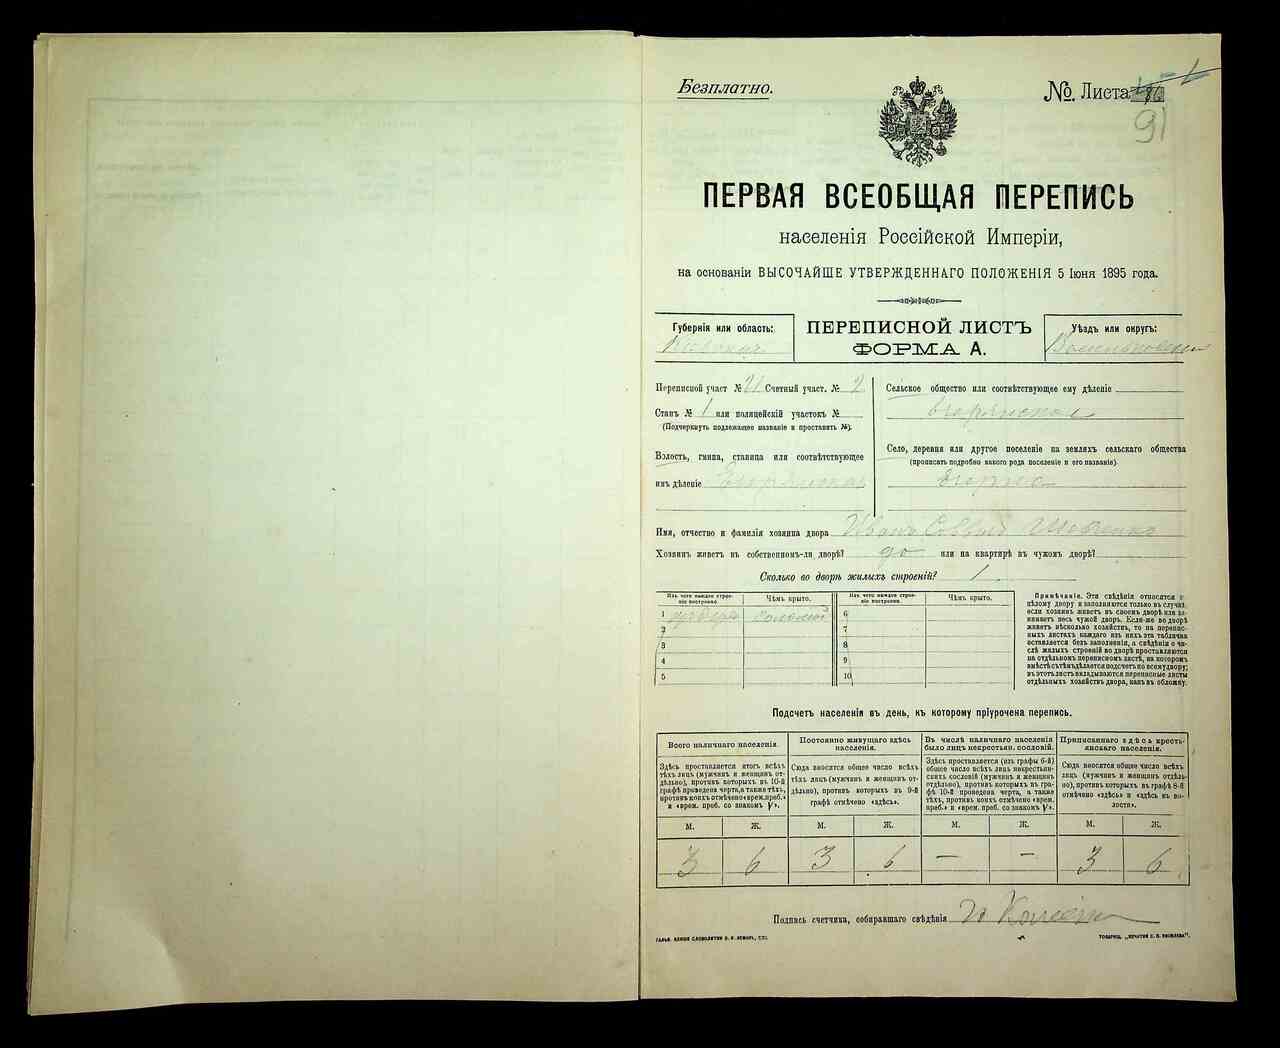 Безплатно.
№. Листа
91
ПЕРВАЯ ВСЕОБЩАЯ ПЕРЕПИСЬ
населенія Россійской Имперіи,
на основаніи ВЫСОЧАЙШЕ УТВЕРЖДЕННАГО ПОЛОЖЕНІЯ 5 Іюня 1895 года.
Губернія или область:
ПЕРЕПИСНОЙ ЛИСТЪ
ФОРМА А.
Уѣздъ или округъ:
Переписной участ № 21 Счетный участ. № 2
Станъ № 1 или полицейскій участокъ №
(Подчеркнуть подлежащее названіе и проставить №).
Волость, гмина, станица или соотвѣтствующее
имъ дѣленіе
Сельское общество или соотвѣтствующее ему дѣленіе
Село, деревня или другое поселеніе на земляхъ сельскаго общества
(прописать подробно какого рода поселеніе и его названіе)
Имя, отчество и фамилія хозяина двора Иванъ
Хозяинъ живетъ въ собственномъ-ли дворѣ? да или на квартирѣ въ чужомъ дворѣ?
Сколько во дворѣ жилыхъ строеній? 1
Изъ чего каждое строеніе построено.
Чѣмъ крыто.
Изъ чего каждое строеніе построено.
Чѣмъ крыто.
1 соломой 6
2 7
3 8
4 9
5 10
Примѣчаніе. Эти свѣдѣнія относятся к
цѣлому двору и заполняются только въ случаѣ,
если хозяинъ живетъ въ своемъ дворѣ или за-
нимаетъ весь чужой дворъ. Если-же во дворѣ
живетъ нѣсколько хозяйствъ, то на перепис-
ныхъ листахъ каждаго изъ нихъ эта табличка
оставляется безъ заполненія, а свѣдѣнія о чи-
слѣ жилыхъ строеній во дворѣ проставляются
на отдѣльномъ переписномъ листѣ, на которомъ
вмѣстѣ съ тѣмъ дѣлается подсчетъ по всему двору;
въ этотъ листъ вкладываются переписные листы
отдѣльныхъ хозяйствъ двора, какъ въ обложку.
Подсчетъ населенія въ день, къ которому пріурочена перепись.
Всего наличнаго населенія.
Здѣсь проставляется итогъ всѣхъ
тѣхъ лицъ (мужчинъ и женщинъ от-
дѣльно), противъ которыхъ въ 10-й
графѣ проведена черта, а также тѣхъ,
противъ коихъ отмѣчено «врем. преб.»
и «врем. преб. со знакомъ V».
Постоянно живущаго здѣсь
населенія.
Сюда вносится общее число всѣхъ
тѣхъ лицъ (мужчинъ и женщинъ от-
дѣльно), противъ которыхъ въ 9-й
графѣ отмѣчено «здѣсь».
Въ числѣ наличнаго населенія
было лицъ некрестьян. сословій.
Здѣсь проставляется (изъ графы 6-й)
общее число всѣхъ лицъ некрестьян-
скихъ сословій (мужчинъ и женщинъ
отдѣльно), противъ которыхъ въ гра-
фѣ 10 проведена черта, а также
тѣхъ, противъ коихъ отмѣчено «врем.
преб.» и «врем. преб. со знакомъ V».
Приписаннаго здѣсь кресть-
янскаго населенія.
Сюда вносится общее число всѣхъ
лицъ (мужчинъ и женщинъ отдѣль-
но), противъ которыхъ въ графѣ 8-й
отмѣчено «здѣсь» и «здѣсь въ во-
лости».
М. Ж. М. Ж. М. Ж. М. Ж.
3 6 3 6 – – 3 6
Подпись счетчика, собиравшаго свѣдѣнія